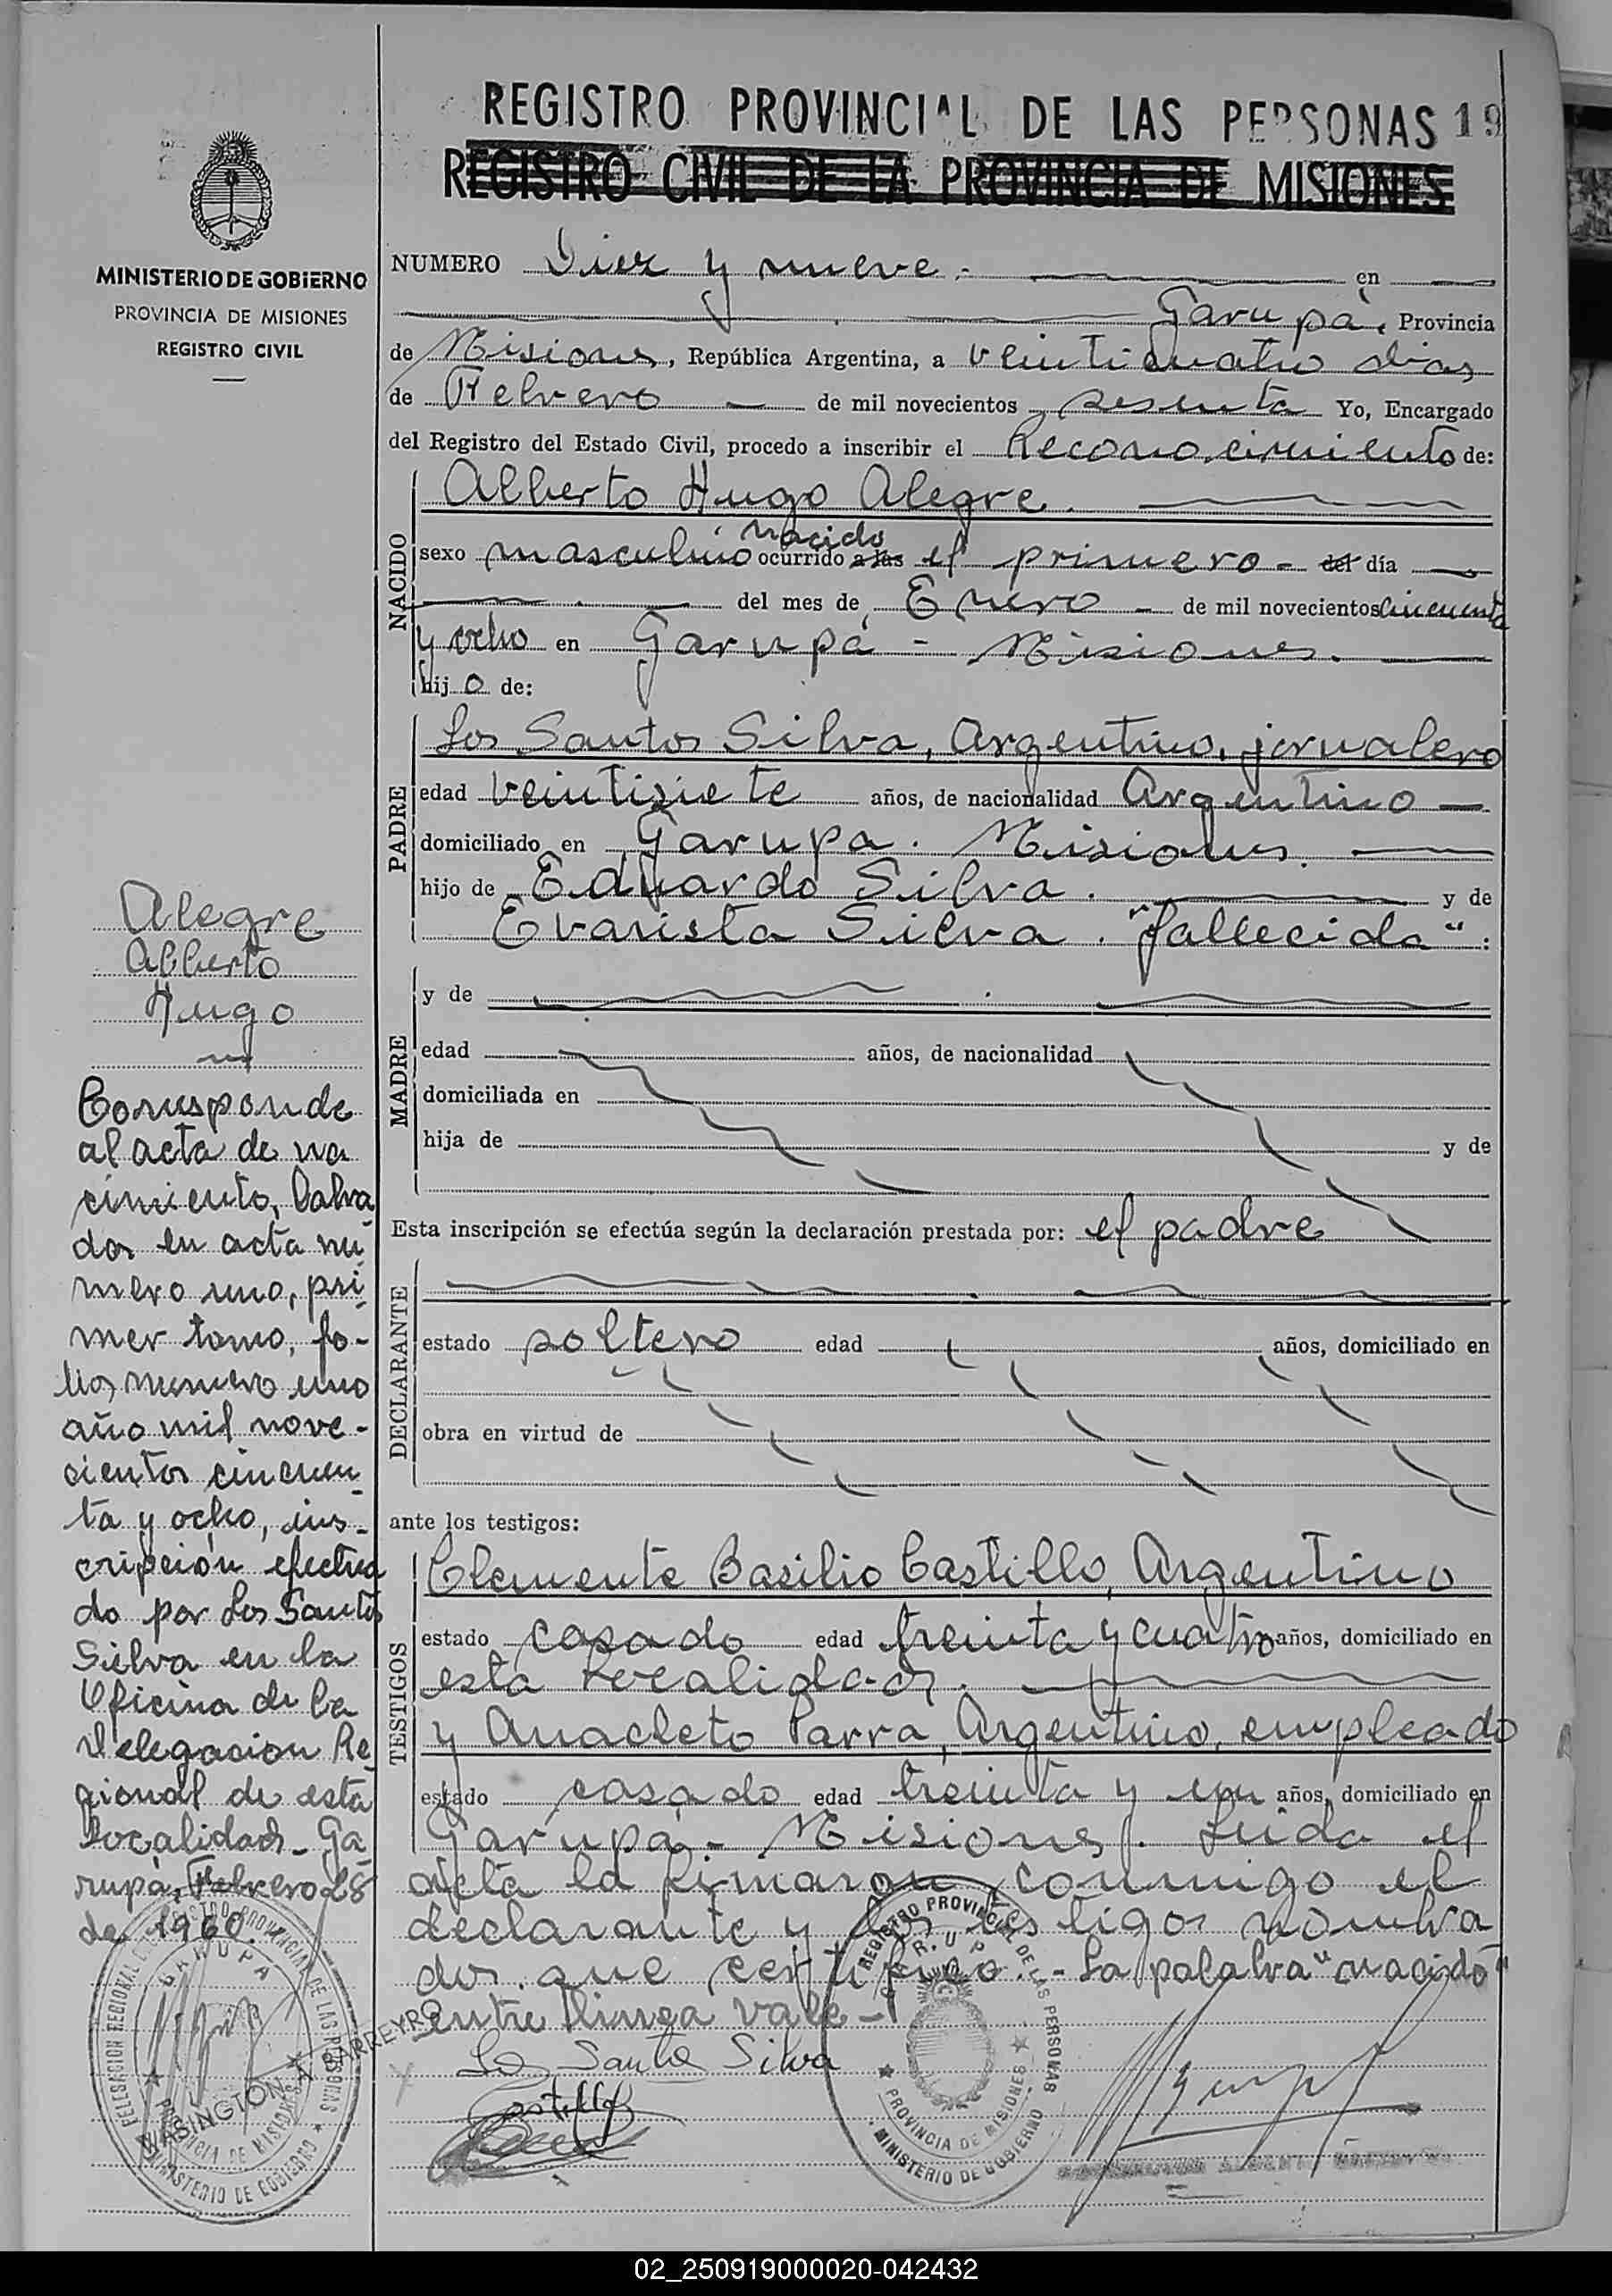 REGISTRO PROVINCIAL DE LAS PERSONAS 19
REGISTRO CIVIL DE LA PROVINCIA DE MISIONES
MINISTERIO DE GOBIERNO
PROVINCIA DE MISIONES
REGISTRO CIVIL
NUMERO Diez y nueve.- en
Garupá. Provincia
de Misiones, República Argentina, a veinticuatro dias
de Febrero de mil novecientos sesenta Yo, Encargado
del Registro del Estado Civil, procedo a inscribir el Reconocimiento de:
NACIDO
Alberto Hugo Alegre.
nacido
sexo masculino ocurrido a las el primero - del día
del mes de Enero - de mil novecientos cincuenta
y ocho en Garupá - Misiones.
hijo de:
PADRE
Los Santos Silva, Argentino, jornalero
edad veintisiete años, de nacionalidad Argentino
domiciliado en Garupa. Misiones.
hijo de Eduardo Silva. y de
Evarista Silva. "fallecida".
MADRE
y de
edad años, de nacionalidad
domiciliada en
hija de y de
Esta inscripción se efectúa según la declaración prestada por: el padre
DECLARANTE
estado soltero edad años, domiciliado en
obra en virtud de
ante los testigos:
TESTIGOS
Clemente Basilio Castillo, Argentino
estado casado edad treinta y cuatro años, domiciliado en
esta localidad.
y Anacleto Parra, Argentino, empleado
estado casado edad treinta y un años, domiciliado en
Garupá - Misiones. Leida el
acta la firmaron conmigo el
declarante y los testigos nombra
dos que certifico.- La palabra "nacido"
entre linea vale -
Los Santos Silva
Castillo
Alegre
Alberto
Hugo
Corresponde
al acta de na
cimiento, Labra
dos en acta nu
mero uno, pri
mer tomo, fo-
lios numero uno
año mil nove-
cientos cincuen
ta y ocho, ins-
cripción efectua
do por Los Santos
Silva en la
Oficina de la
Delegacion Re
gional de esta
Localidad - Ga
rupá, Febrero 28
de 1960.
DELEGACION REGIONAL DEL REGISTRO PROVINCIAL DE LAS PERSONAS
GARUPA
PROVINCIA DE MISIONES
MINISTERIO DE GOBIERNO
WASINGTON A. BARREYRO
REGISTRO PROVINCIAL DE LAS PERSONAS
PROVINCIA DE MISIONES
MINISTERIO DE GOBIERNO
02_250919000020-042432